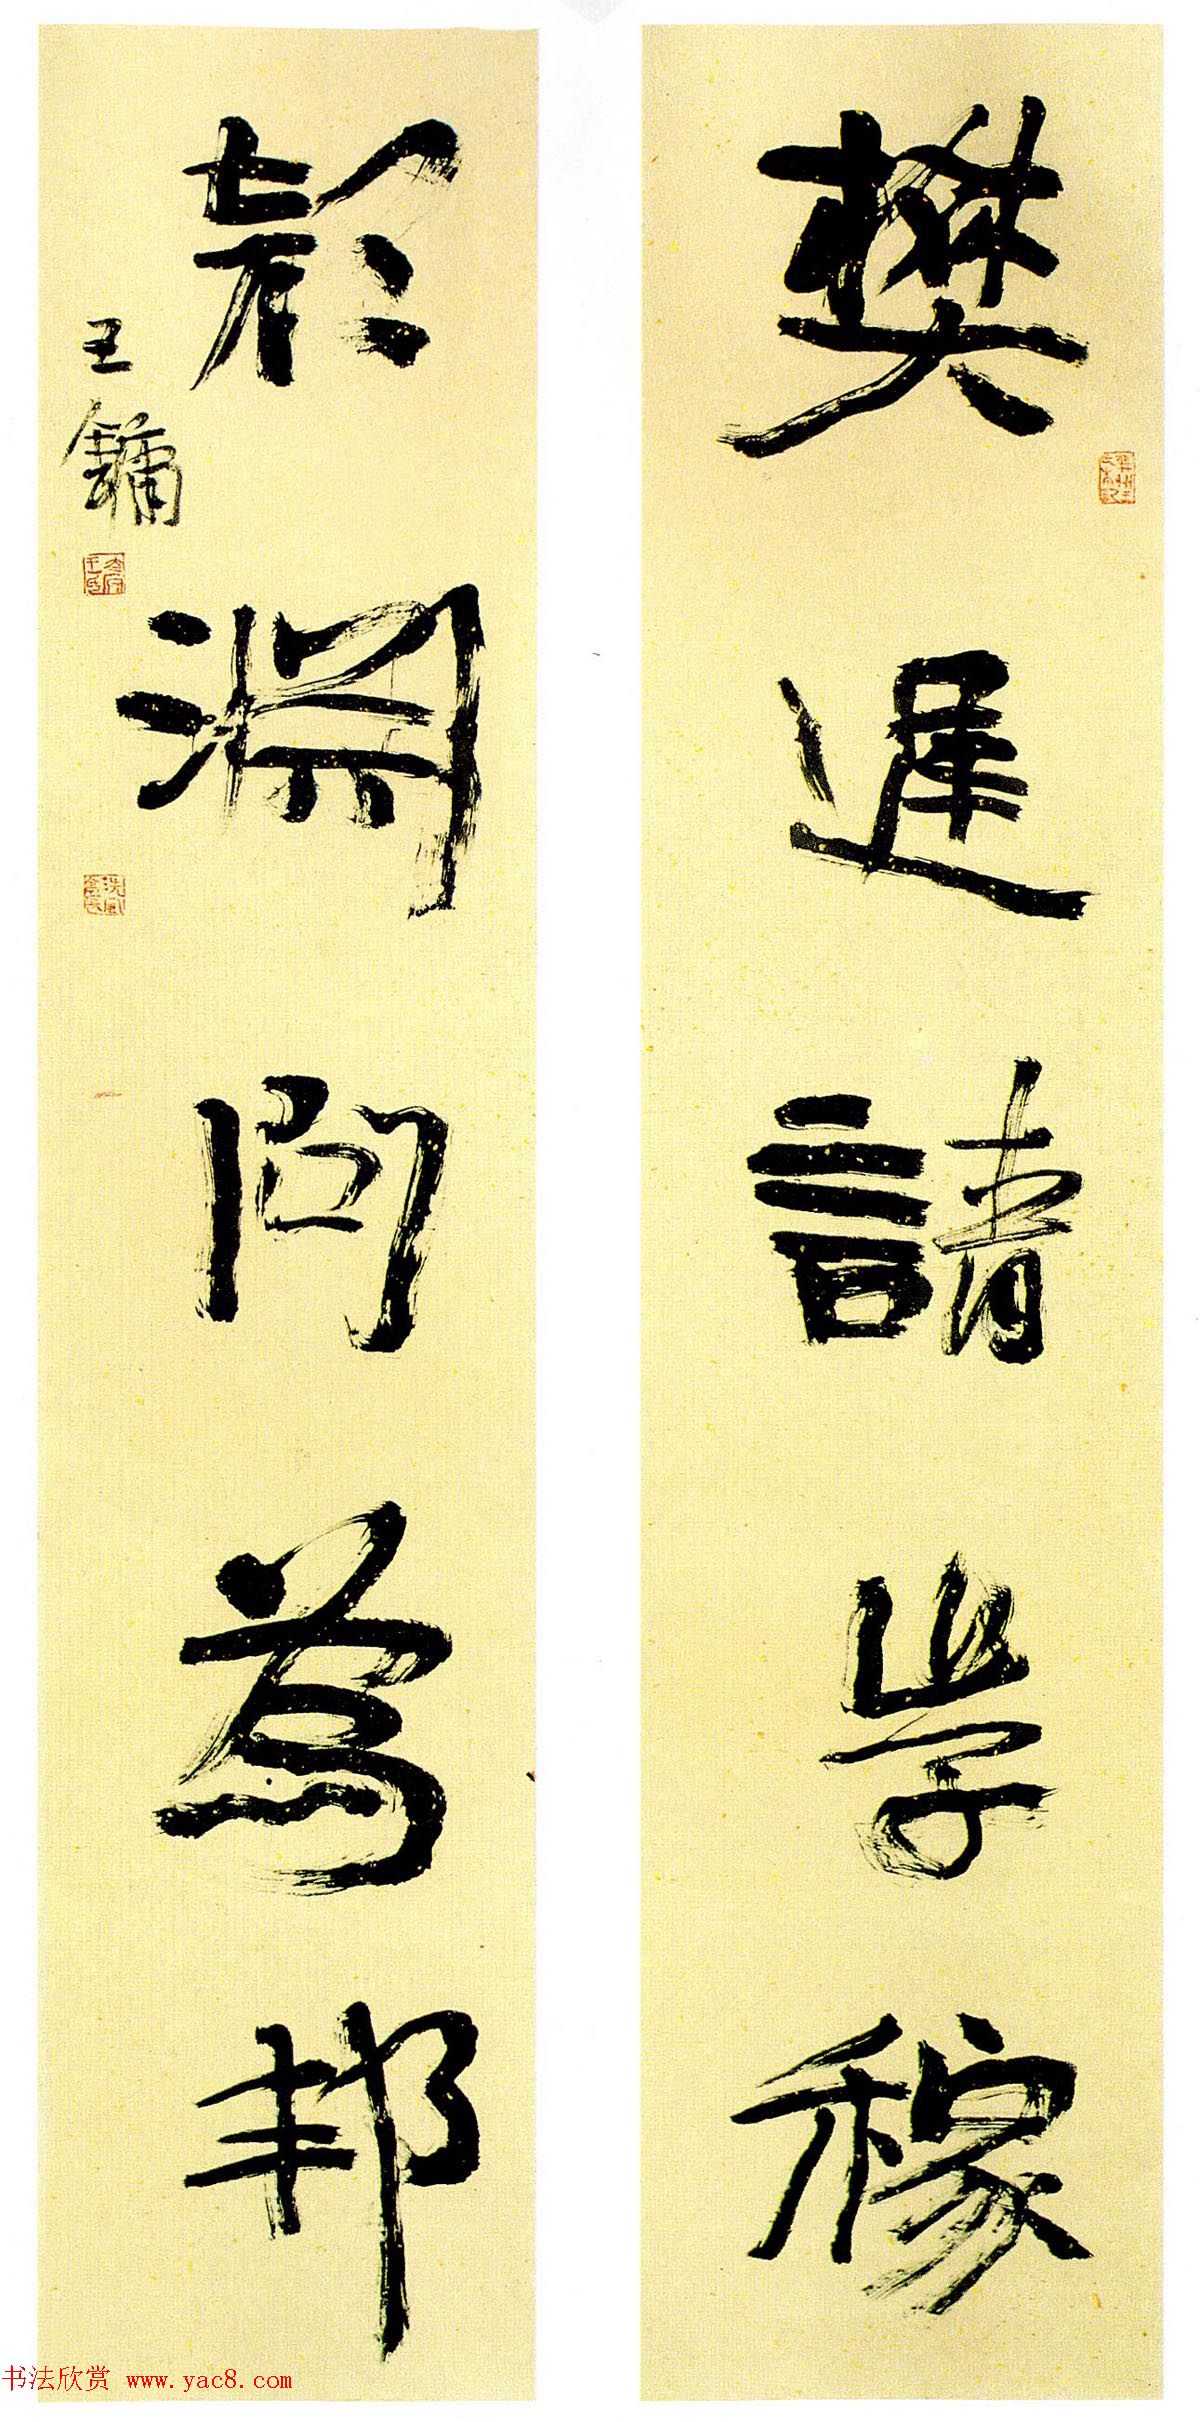 樊遲請学稼
顏淵问為邦
王鏞
书法欣赏 www.yac8.com